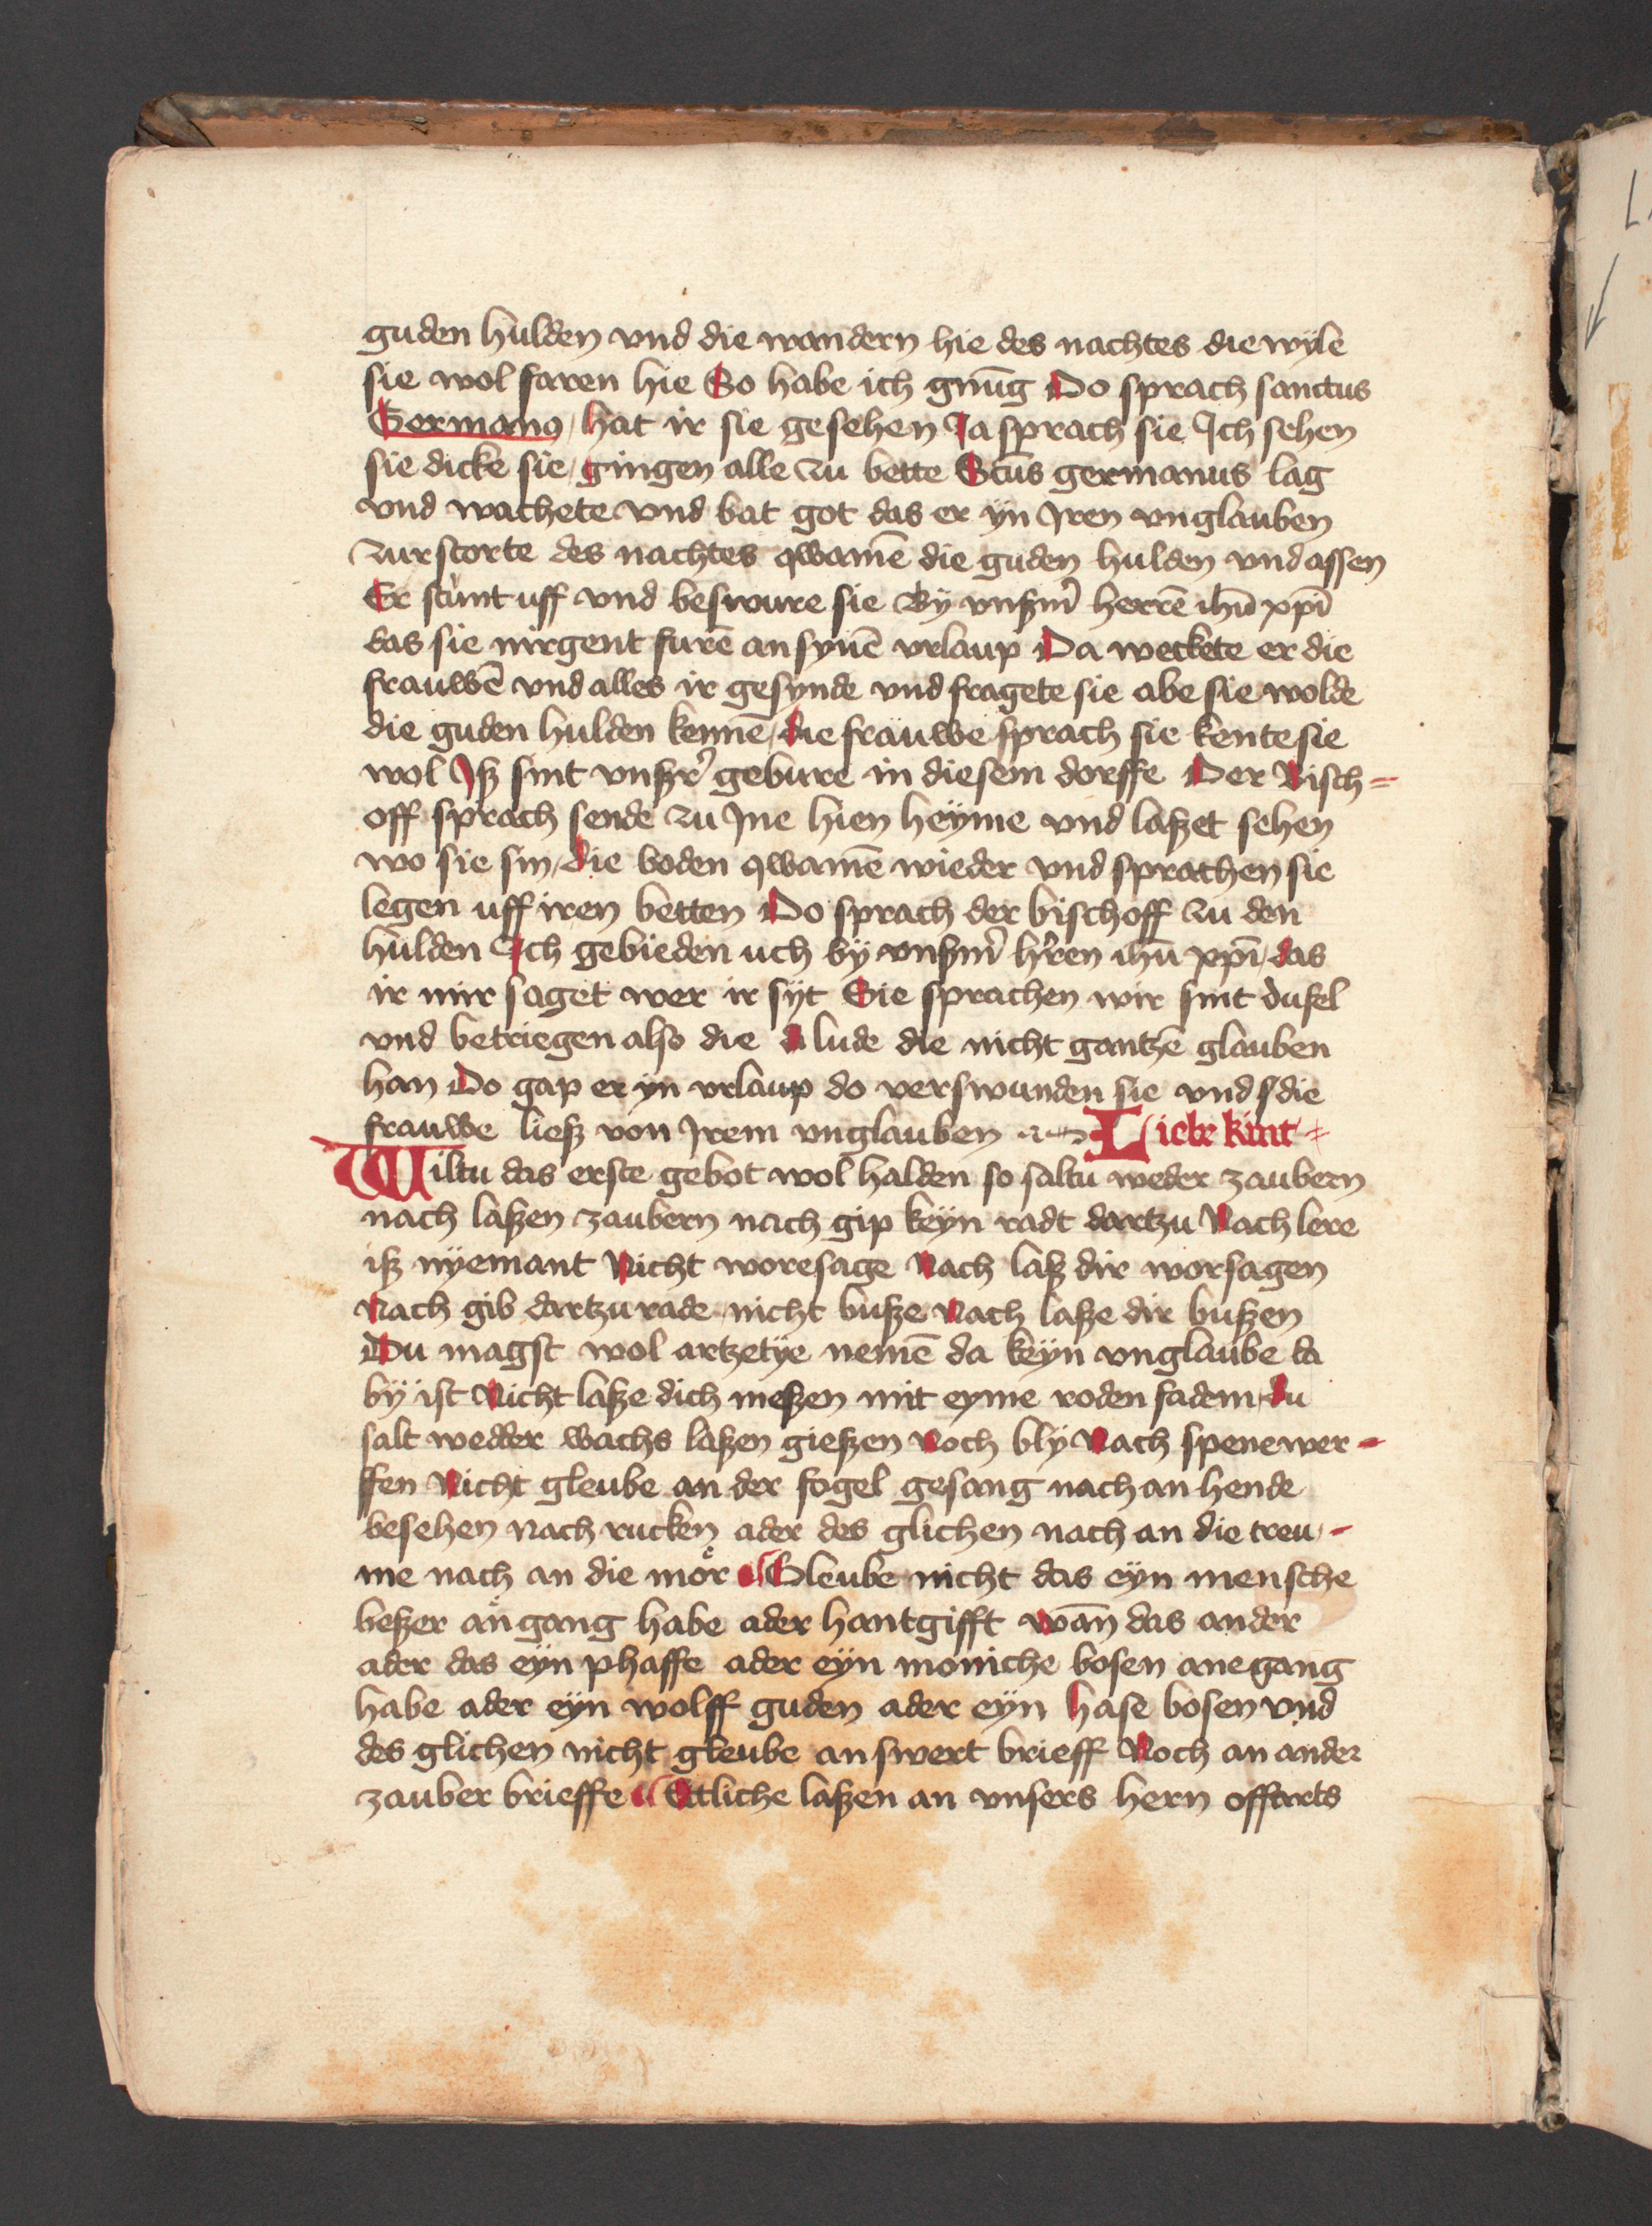 guden hulden vnd die wandern hie des nachtes die wÿle
sie wol faren hie So habe ich gnūg Do sprach sanctus
Germanꝰ / hat ir sie gesehen Ja sprach sie Ich sehen
sie dicke sie / gingen alle zu bette Sctūs germanus lag
vnd wachete vnd bat got das er ÿn Jren vnglauben
zurstorte des nachtes qwamē die guden hulden vnd assen
Er stùnt uff vnd beswure sie Bÿ vnßm̉ herrē ihū xp̄i
das sie nirgent furē an synē vrlaup Da weckete er die
frauwē vnd alles ir gesynde vnd fragete sie abe sie wolde
die guden hulden kennē / die fräuwe sprach sie kente sie
wol Jß sint vnßr̉ gebure in diesem dorffe Der Bisch=
off sprach sende zu Jne hien heÿme vnd laßet sehen
wo sie sin / die boden qwamē wieder vnd sprachen sie
legen uff iren betten Do sprach der bischoff zu den
hulden Ich gebieden uch bÿ vnßm̉ hr̉en ihū xp̄i / das
ir mir saget wer ir sÿt Sie sprachen wir sint dufel
vnd betriegen also die lude die nicht gantzē glauben
han Do gap er yn vrlaup do verswunden sie vnd die
frauwe ließ von Jrem vnglauben Liebe kint =
Wiltu das erste gebot wol halden so saltu weder zaubern
nach laßen zaubern nach gip keÿn radt dartzu Nach lere
iß nÿemant Nicht woresage Nach laß dir worsagen
Nach gib dartzu rade nicht buße Nach laße dir bußen
Du magst wol artzetÿe nemē da keÿn vnglaube da
bÿ ist Nicht laße dich meßen mit eyme roden fadem / du
salt wedder wachs laßen gießen Noch blÿ Nach spene wer-
ffen Nicht gleube an der fogel gesang nach an hende
besehen nach rucken ader des glichen nach an die treu-
me nach an die mör Gleube nicht das eÿn mensche
beßer angang habe ader hantgifft wān das ander
ader das eÿn phaffe ader eÿn moniche bosen anegang
habe ader eÿn wolff guden ader eÿn hase bosen vnd
des glichen nicht gleube an swert brieff Noch an ander
zauber brieffe Etliche laßen an vnsers hern offarts